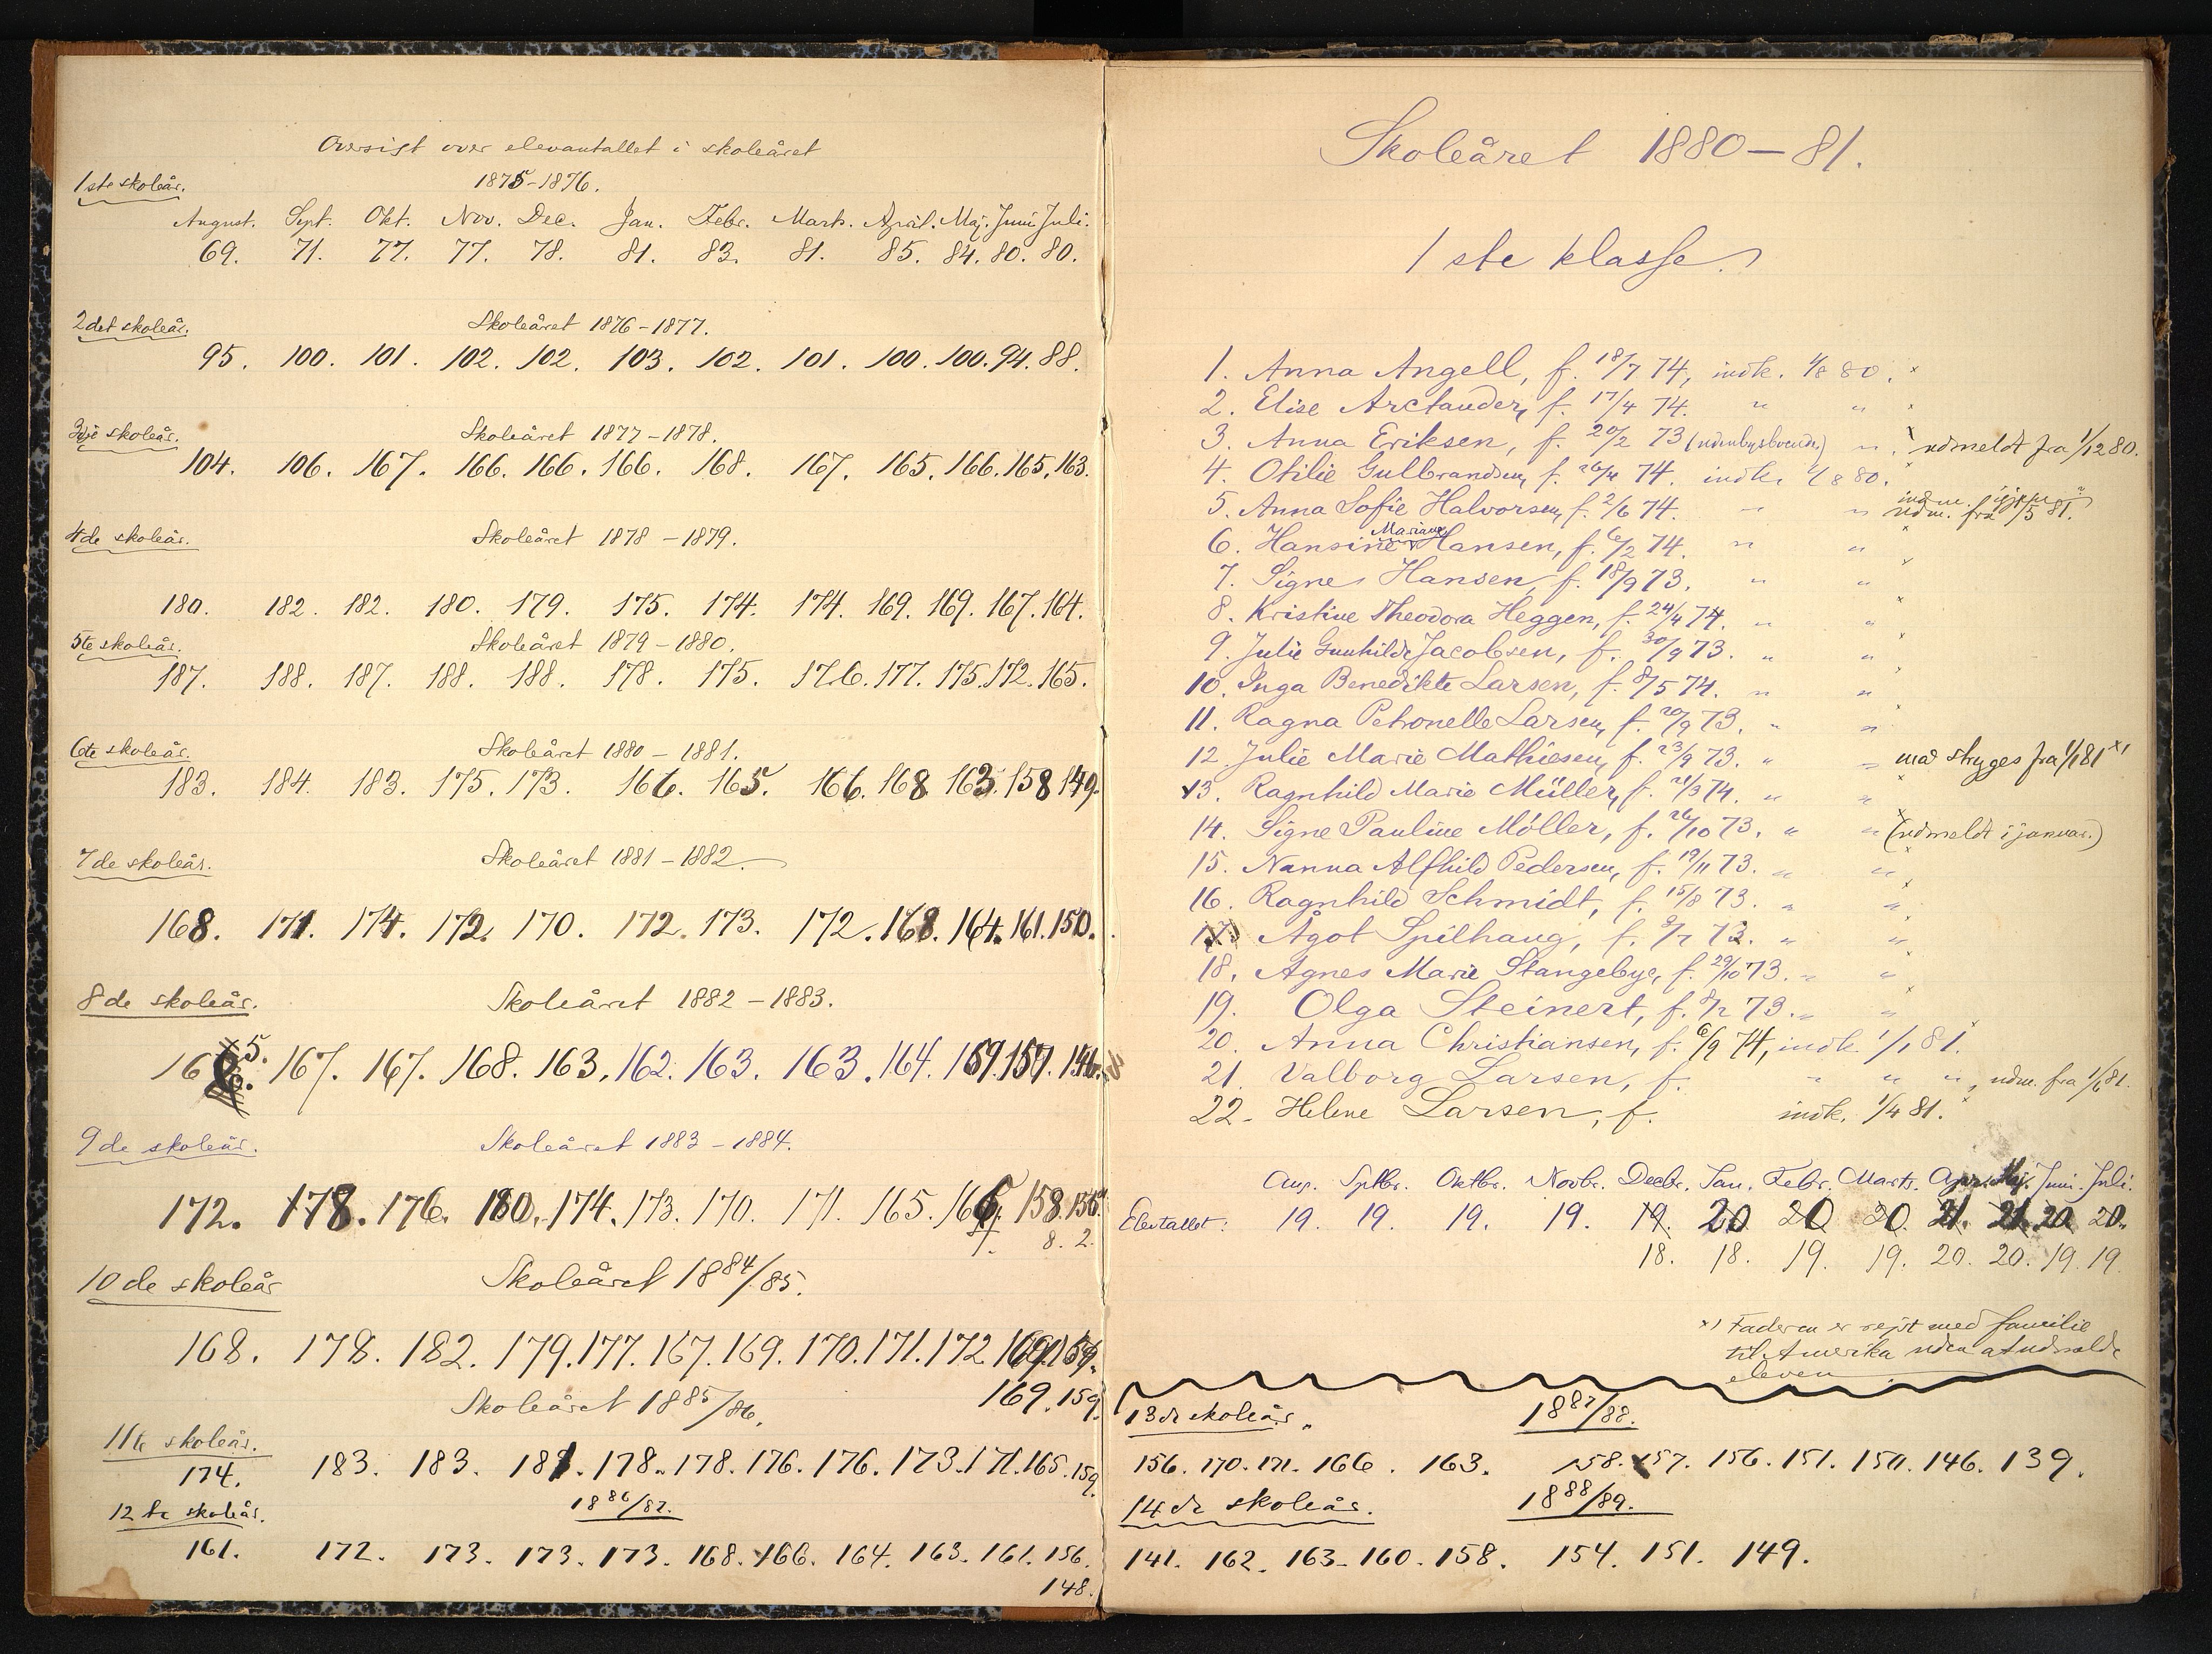 Oversigt over elevantallet i skoleåret
1ste skoleår. 1875-1876.
August. Sept. Okt. Nov. Dec. Jan. Febr. Marts. April. Maj. Juni Juli.
69. 71. 77. 77. 78. 81. 83. 81. 85. 84. 80. 80.
2det skoleår. Skoleåret 1876-1877.
95. 100. 101. 102. 102. 103. 102. 101. 100. 100. 94. 88.
3die skoleår. Skoleåret 1877-1878.
104. 106. 167. 166. 166. 166. 168. 167. 165. 166. 165. 163.
4de skoleår. Skoleåret 1878-1879.
180. 182. 182. 180. 179. 175. 174. 174. 169. 169. 167. 164.
5te skoleår. Skoleåret 1879-1880.
187. 188. 187. 188. 188. 178. 175. 176. 177. 175. 172. 165.
6te skoleår. Skoleåret 1880-1881.
183. 184. 183. 175. 173. 166. 165. 166. 168. 163. 158 149.
7de skoleår. Skoleåret 1881-1882.
168. 171. 174. 172. 170. 172. 173. 172. 168. 164. 161. 150.
8de skoleår. Skoleåret 1882-1883.
165. 167. 167. 168. 163. 162. 163. 163. 164. 159. 157. 146.
9de skoleår. Skoleåret 1883-1884.
172. 178. 176. 180. 174. 173. 170. 171. 165. 166. 158. 156.
7. 8. 2.
10de skoleår Skoleåret 1884/85.
168. 178. 182. 179. 177. 167. 169. 170. 171. 172 169. 159.
169. 159.
Skoleåret 1885/86.
11te skoleår.
174. 183. 183. 181. 178. 178. 176. 176. 173. 171. 165. 159.
12te skoleår. 1886/87.
161. 172. 173. 173. 173. 168. 166. 164. 163. 161. 156.
148.
Skoleåret 1880-81.
1ste klasse.
1. Anna Angell, f. 18/7 74, indk. 1/8 80.
2. Elise Arctander, f. 17/4 74. " "
3. Anna Eriksen, f. 20/2 73 (udenbysboende) " . udmeldt fra 1/12 80.
4. Otilie Gulbrandsen, f. 26/4 74. indk. 1/8 80.
indm. igjen
5. Anna Sofie Halvorsen, f. 2/6 74. " " udm. fra 1/5 81.
Mariane
6. Hansine Hansen, f. 6/2 74. " "
7. Signe Hansen, f. 18/9 73. " "
8. Kristine Theodora Heggen, f. 24/4 74. " "
9. Julie Gunhilde Jacobsen, f. 30/9 73. " "
10. Inga Benedikte Larsen, f. 8/5 74. " "
11. Ragna Petronelle Larsen, f. 20/9 73. " "
12. Julie Marie Mathiesen, f. 23/9 73. " " maa stryges fra 1/1 81 x)
13. Ragnhild Marie Müller, f. 21/3 74. " "
14. Signe Pauline Möller, f. 26/10 73. " " (udmeldt i januar.)
15. Nanna Alfhild Pedersen, f. 19/11 73. " "
16. Ragnhild Schmidt, f. 15/8 73. " "
17. Ågot Spilhaug, f. 9/7 73. " "
18. Agnes Marie Stangebye, f. 29/10 73. " "
19. Olga Steinert, f. 8/12 73. " "
20. Anna Christiansen, f. 6/9 74, indk. 1/1 81.
21. Valborg Larsen, f. " " ", udm. fra 1/6 81.
22. Helene Larsen, f. indk. 1/4 81.
Aug. Septbr. Oktbr. Novbr. Decbr. Jan. Febr. Marts. Apr. Maj. Juni. Juli.
Elevtallet: 19. 19. 19. 19. 19. 20 20 20. 21. 21. 20 20.
18. 18. 19. 19. 20. 20. 19. 19.
x) Faderen er rejst med familie
til Amerika uden at udmelde
eleven
13de skoleår. 1887/88.
156. 170. 171. 166. 163. 158. 157. 156. 151. 150. 146. 139.
14de skoleår. 1888/89.
141. 162. 163. 160. 158. 154. 151. 149.